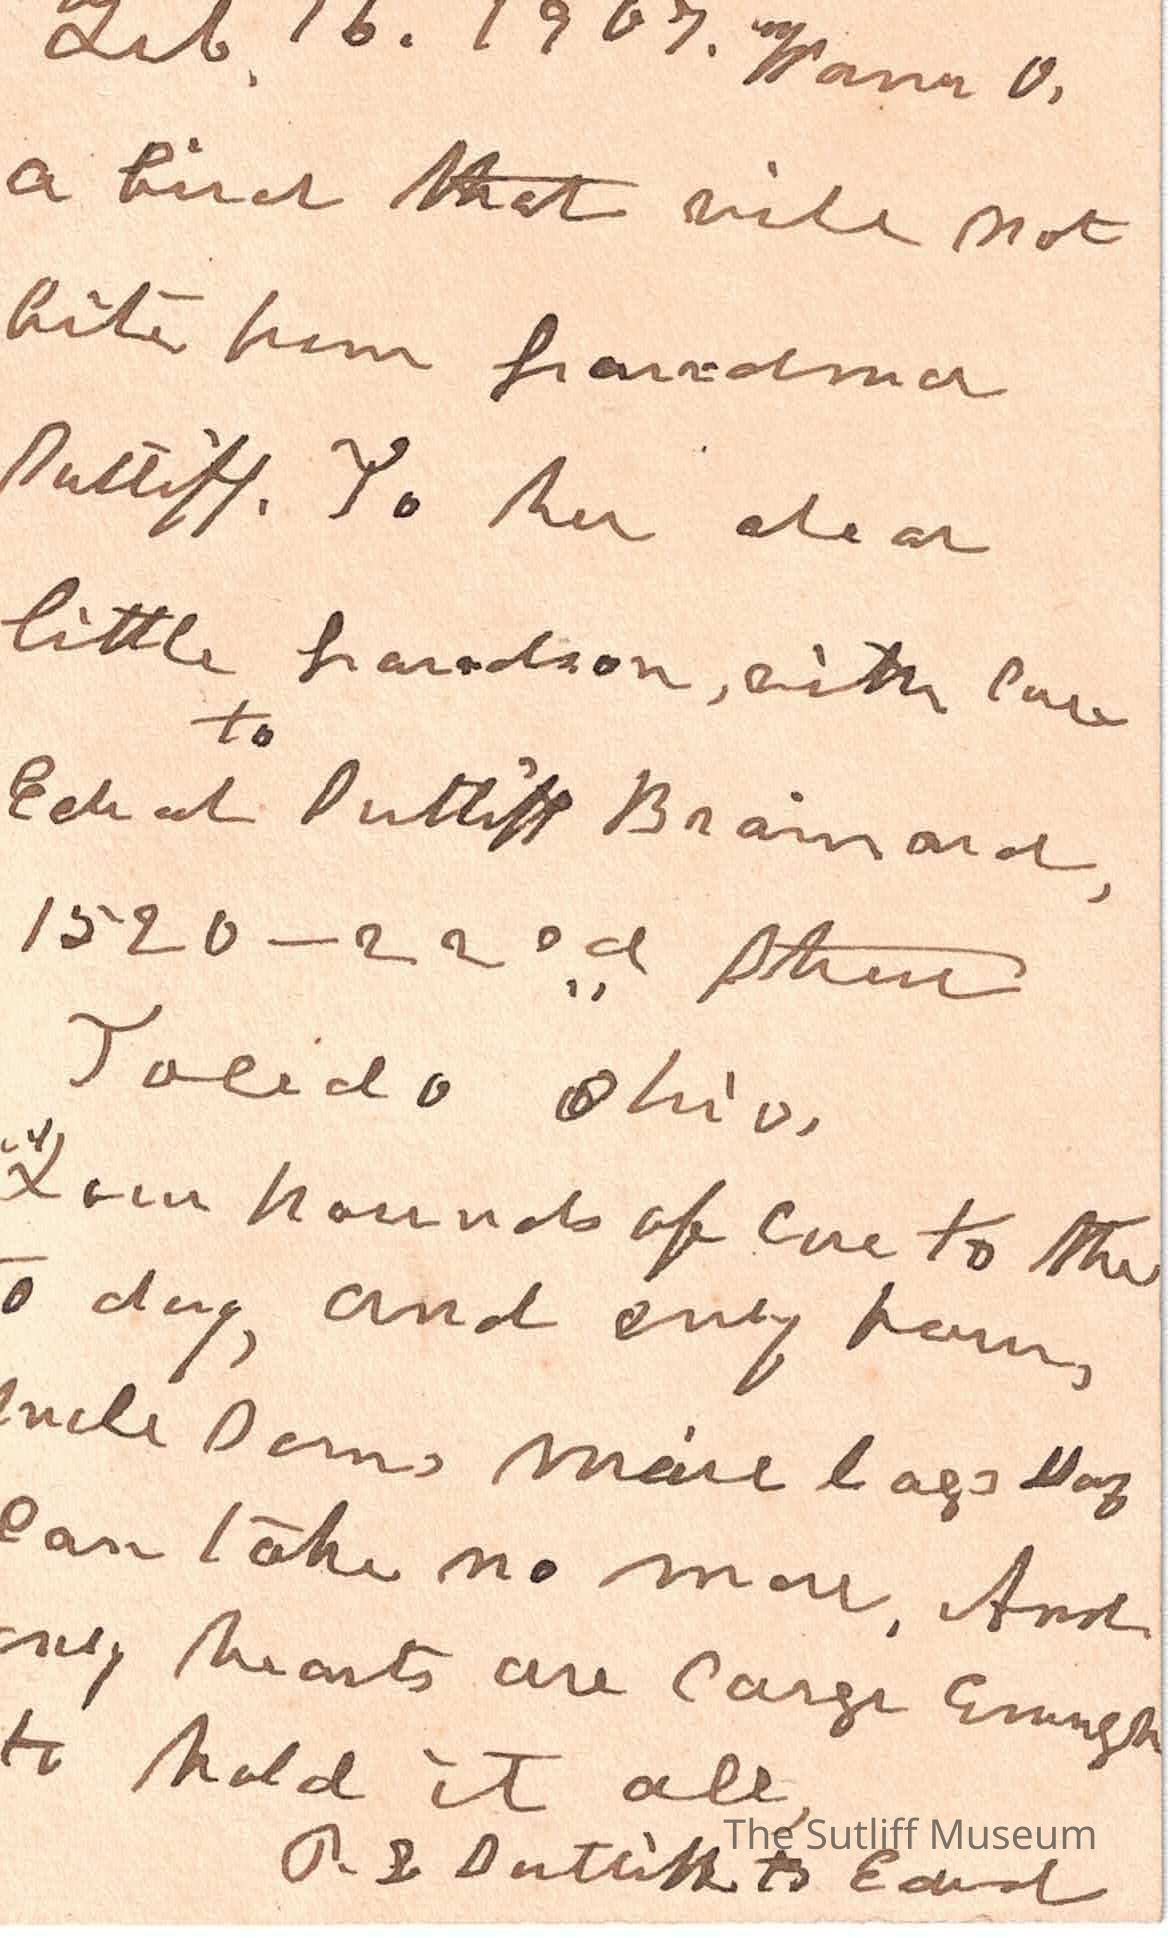 Feb. 16. 1907. Warren O.
a bird that will not
bite from grandma
Sutliff. To her dear
little grandson, with love
to
Edward Sutliff Brainard,
1520-22nd Street
Toledo Ohio.
Four pounds of love to the
to day, and only four,
Uncle Sam's mail bags say
Can take no more, And
only hearts are large Enough
to hold it all,
P. L Sutliff to Edward
The Sutliff Museum